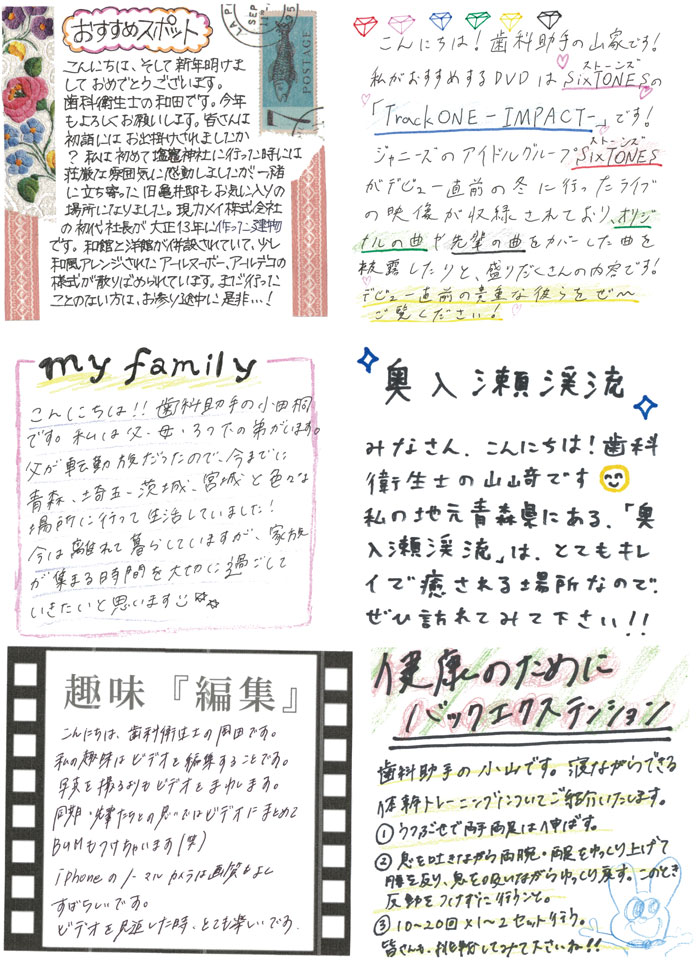 おすすめスポット
こんにちは、そして新年明けま
しておめでとうございます。
歯科衛生士の和田です。今年
もよろしくお願いします。皆さんは
初詣にはお出掛けされましたか
？私は初めて塩竈神社に行った時には
荘厳な雰囲気に感動しましたが、一緒
に立ち寄った旧亀井邸もお気に入りの
場所になりました。現カメイ株式会社
の初代社長が大正13年に作った建物
です。和館と洋館が併設されていて、少し
和風アレンジされたアールヌーボー、アールデコの
様式が散りばめられています。まだ行った
ことのない方は、お参り途中に是非…！
SEP
POSTAGE
こんにちは！歯科助手の山家です！
私がおすすめするDVDはSixTONESの
ストーンズ
「TrackONE-IMPACT-」です！
ジャニーズのアイドルグループSixTONES
ストーンズ
がデビュー直前の冬に行ったライブ
の映像が収録されており、オリジ
ナルの曲や先輩の曲をカバーした曲を
披露したりと、盛りだくさんの内容です！
デビュー直前の貴重な彼らをぜ〜
ご覧ください！
my family
こんにちは！！歯科助手の小田桐
です。私は父・母・3つ下の弟がいます。
父が転勤族だったので、今までに
青森、埼玉、茨城、宮城と色々な
場所に行って生活していました！
今は離れて暮らしていますが、家族
が集まる時間を大切に過ごして
いきたいと思います
奥入瀬渓流
みなさん、こんにちは！歯科
衛生士の山﨑です
私の地元青森県にある、「奥
入瀬渓流」は、とてもキレ
イで癒される場所なので、
ぜひ訪れてみて下さい！！
趣味『編集』
こんにちは、歯科衛生士の岡田です。
私の趣味はビデオを編集することです。
写真を撮るよりもビデオをまわします。
同期・先輩たちとの思い出はビデオにまとめて
BGMもつけちゃいます(笑)
iPhoneのノーマルカメラは画質もよし
すばらしいです。
ビデオを見返した時、とても楽しいです。
健康のために
バックエクステンション
歯科助手の小山です。寝ながらできる
体幹トレーニングについてご紹介いたします。
①うつぶせで両手両足は伸ばす。
②息を吐きながら両腕・両足をゆっくり上げて
腰を反り、息を吸いながらゆっくり戻す。このとき
反動をつけずに行うこと。
③10〜20回×1〜2セット行う。
皆さんも、挑戦してみて下さいね！！